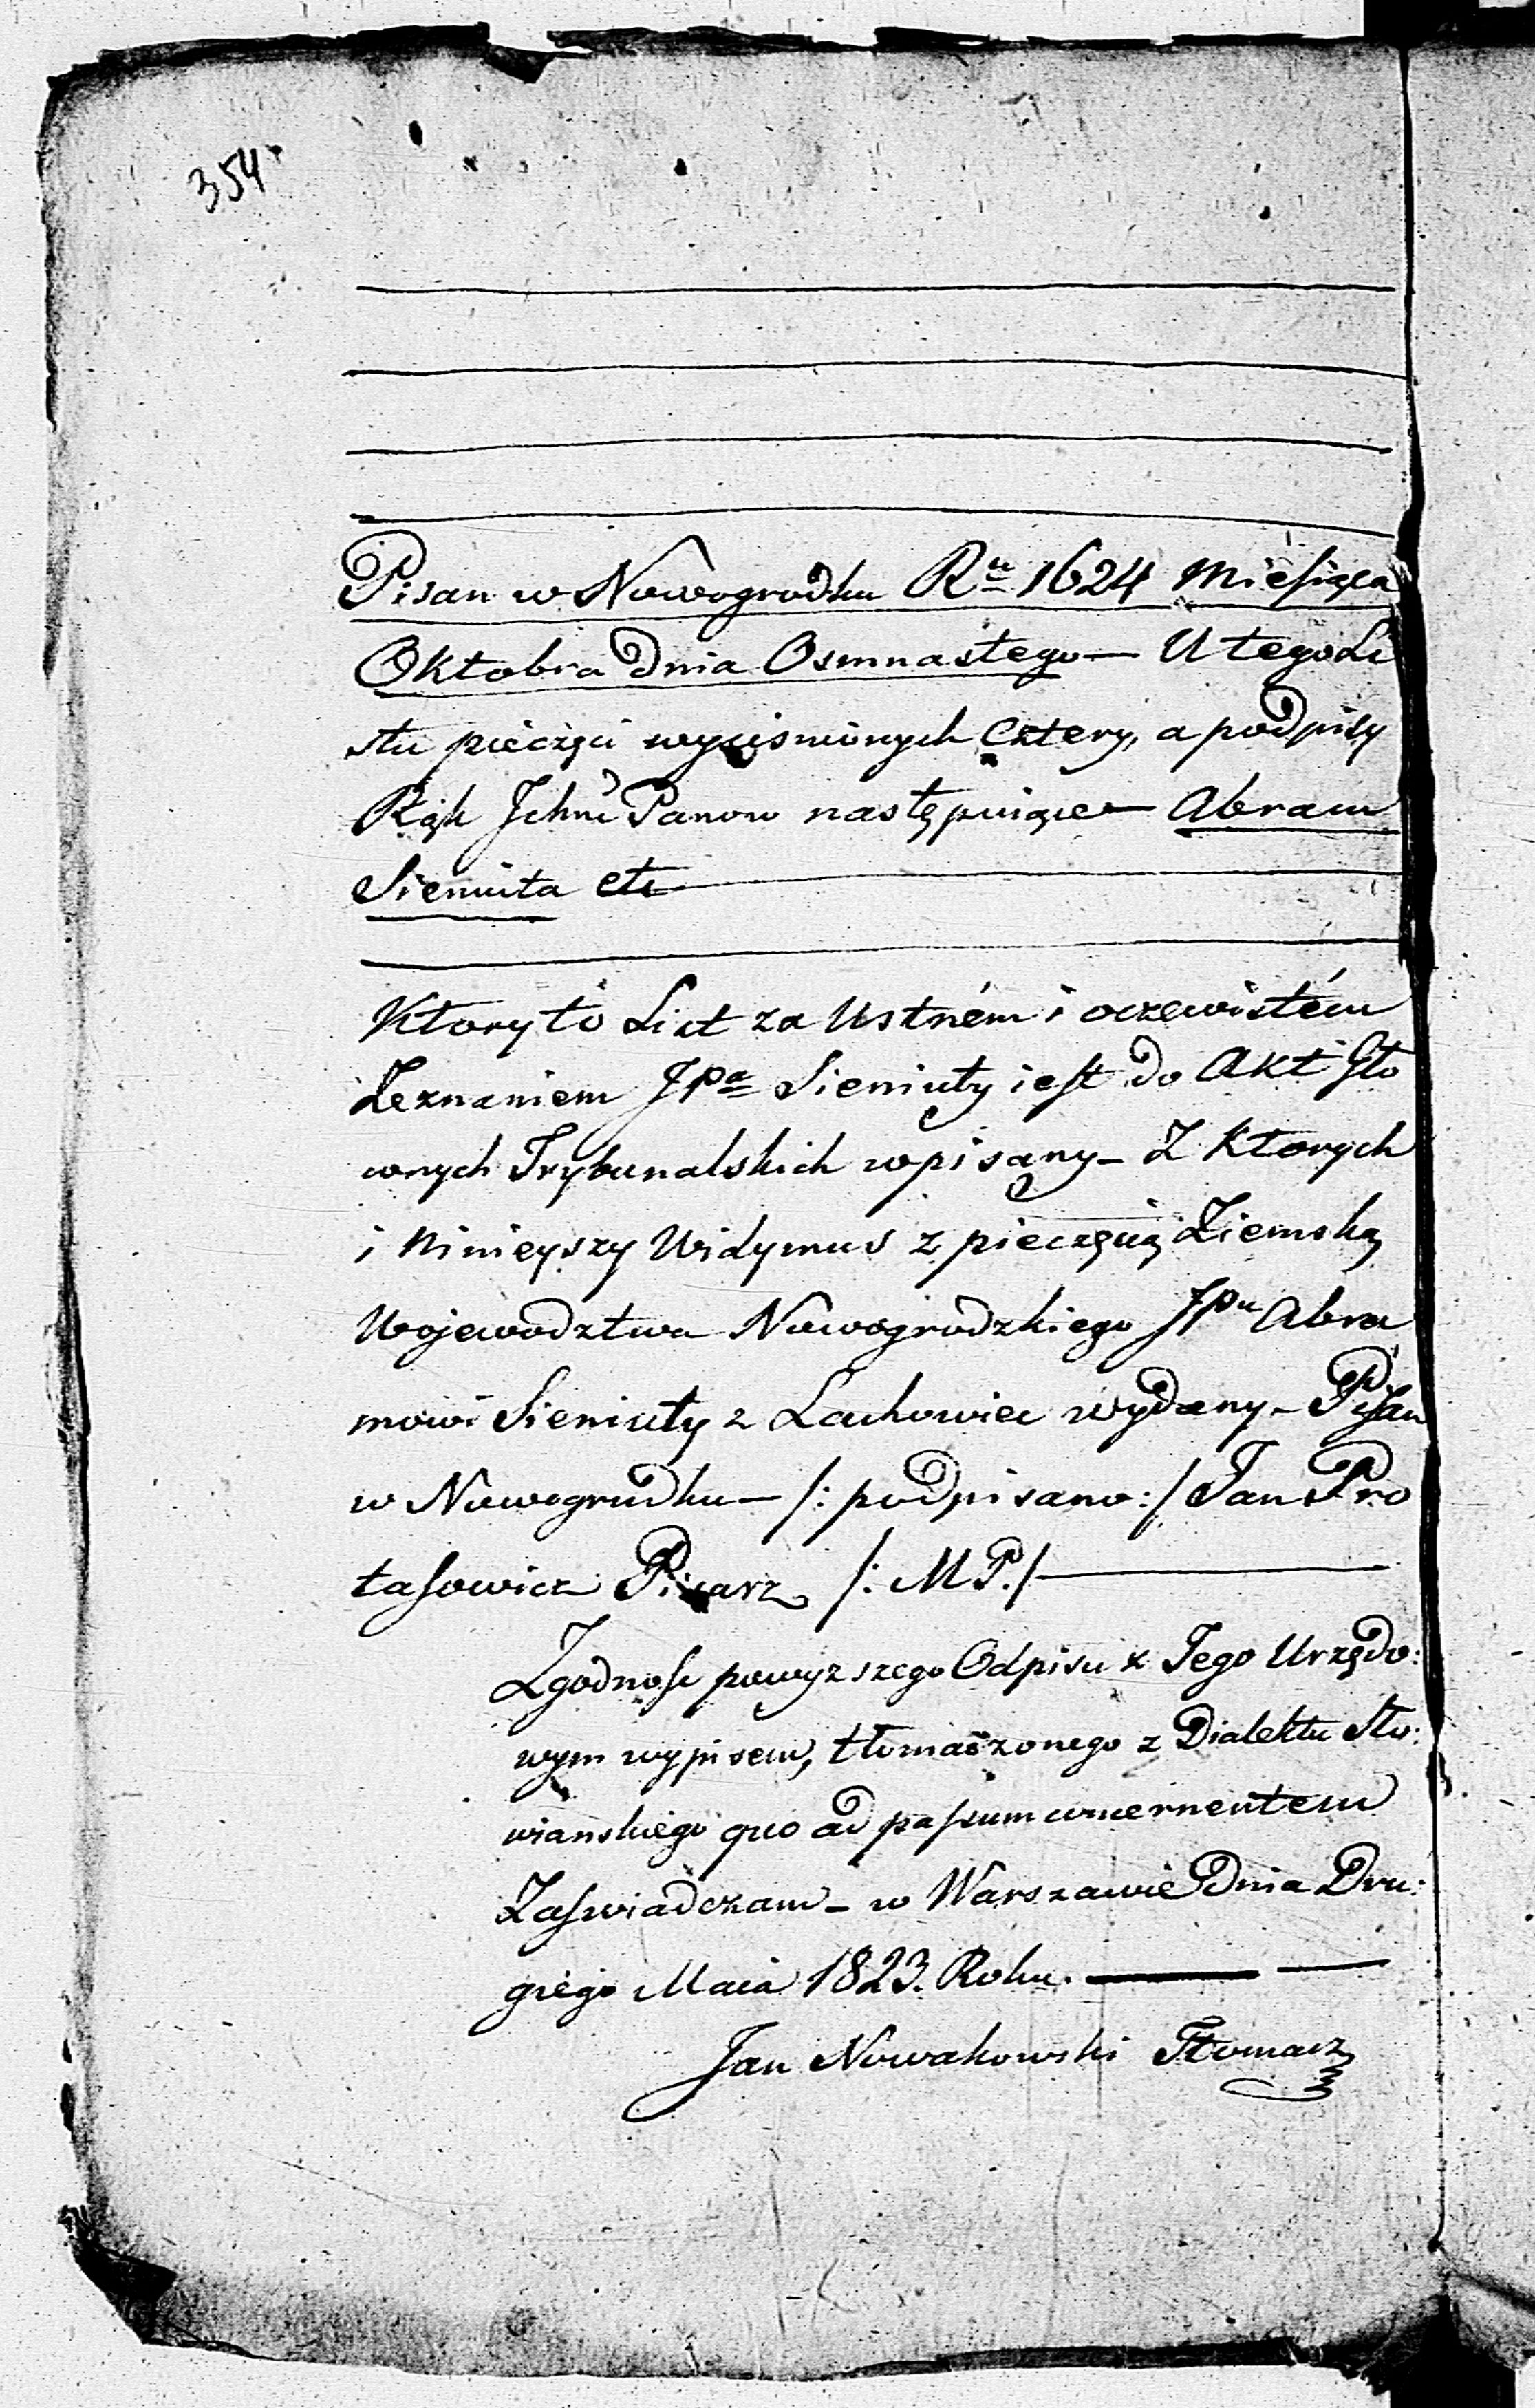 354
Pisan w Nowogrodku Ru 1624 Miesiąca
Oktobra Dnia Osmnastego — U tego Li
stu pieczęci wyciśnionych Cztery, a podpisy
Rąk Jchmć Panow następuiące — Abram
Sieniuta etc
Ktory to List za Ustném i oczewistém
Zeznaniem JPa Sieniuty iest do Akt Gło
wnych Trybunalskich wpisany — Z Ktorych
i Ninieyszy Widymus z pieczęcią Ziemską
Wojewodztwa Nowogrodzkiego JPu Abra
mowi Sieniuty z Lachowiec wydany — Pisan
w Nowogrudku — /: podpisano :/ Jan Pro
tasowicz Pisarz /: M P. /
Zgodnosc powyzszego Odpisu z Jego Urzędo:
wym wypisem, tłomaczonego z Dialektu Sło:
wianskiego quo ad passum concernentem
Zaswiadczam — w Warszawie Dnia Dru:
giego Maia 1823. Roku.
Jan Nowakowski Tłomacz